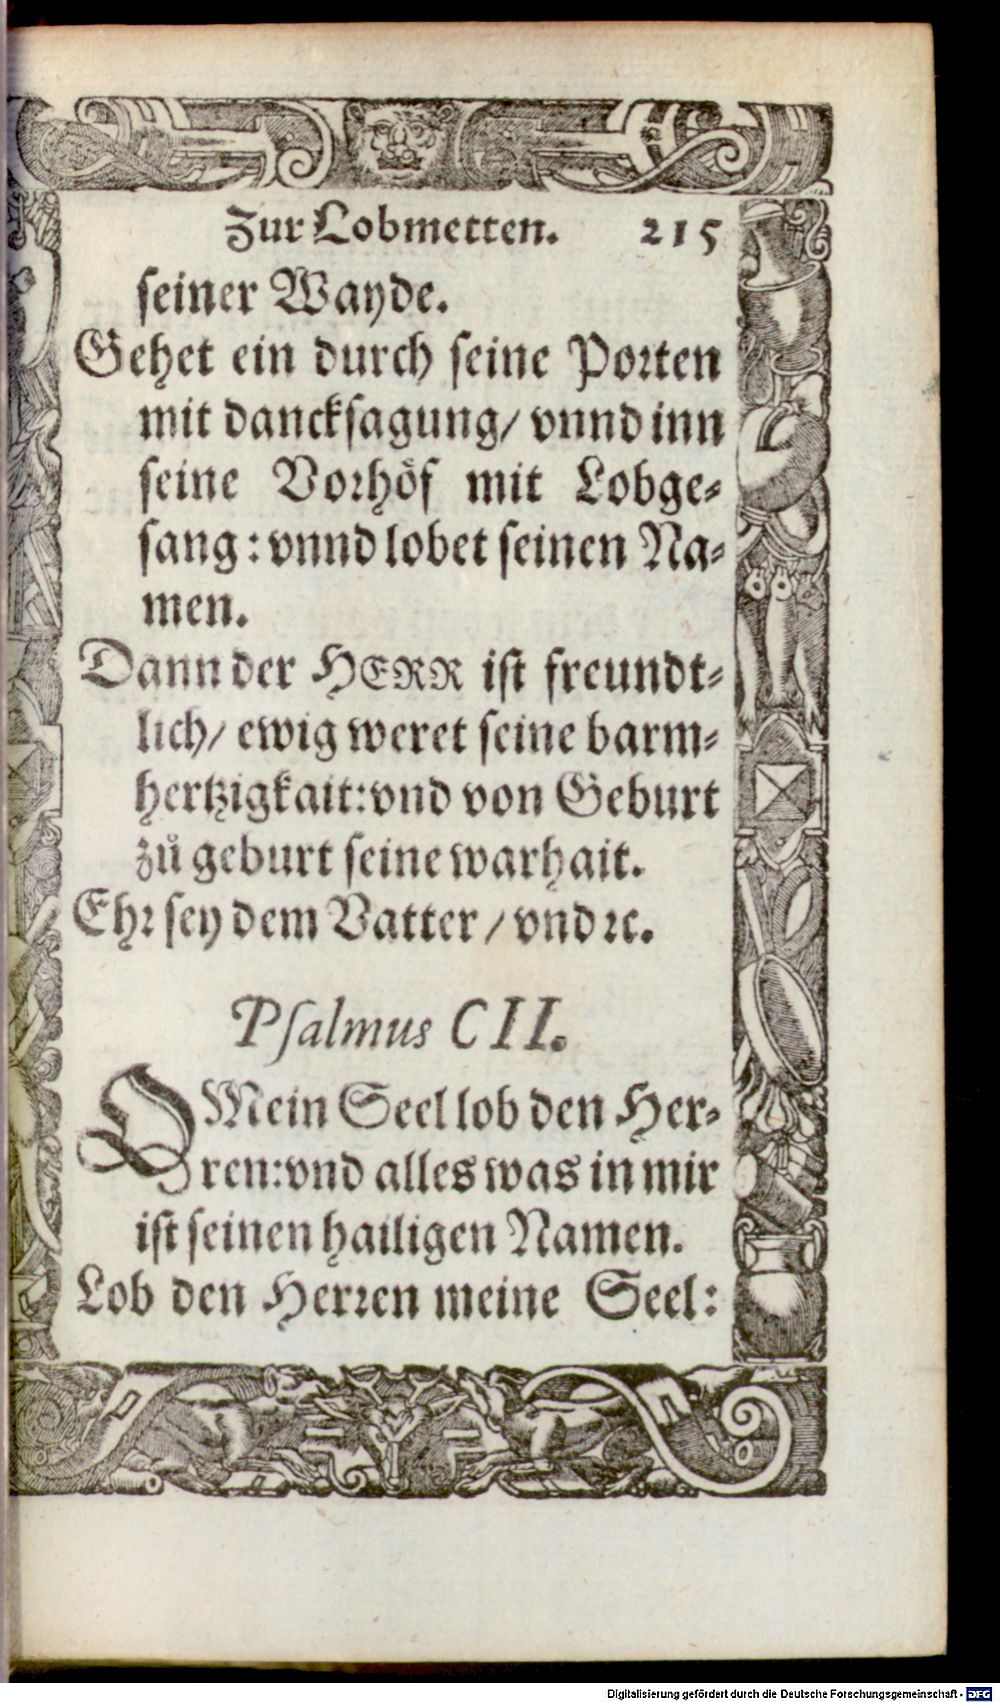 Zur Lobmetten. 215
seiner Wayde.
Gehet ein durch seine Porten
mit dancksagung/ vnnd inn
seine Vorhöf mit Lobge⸗
sang: vnnd lobet seinen Na⸗
men.
Dann der HERR ist freundt⸗
lich/ ewig weret seine barm⸗
hertzigkait: vnd von Geburt
zů geburt seine warhait.
Ehr sey dem Vatter / vnd ꝛc.
Psalmus CII.
O Mein Seel lob den Her⸗
ren: vnd alles was in mir
ist seinen hailigen Namen.
Lob den Herren meine Seel:
Digitalisierung gefördert durch die Deutsche Forschungsgemeinschaft - DFG